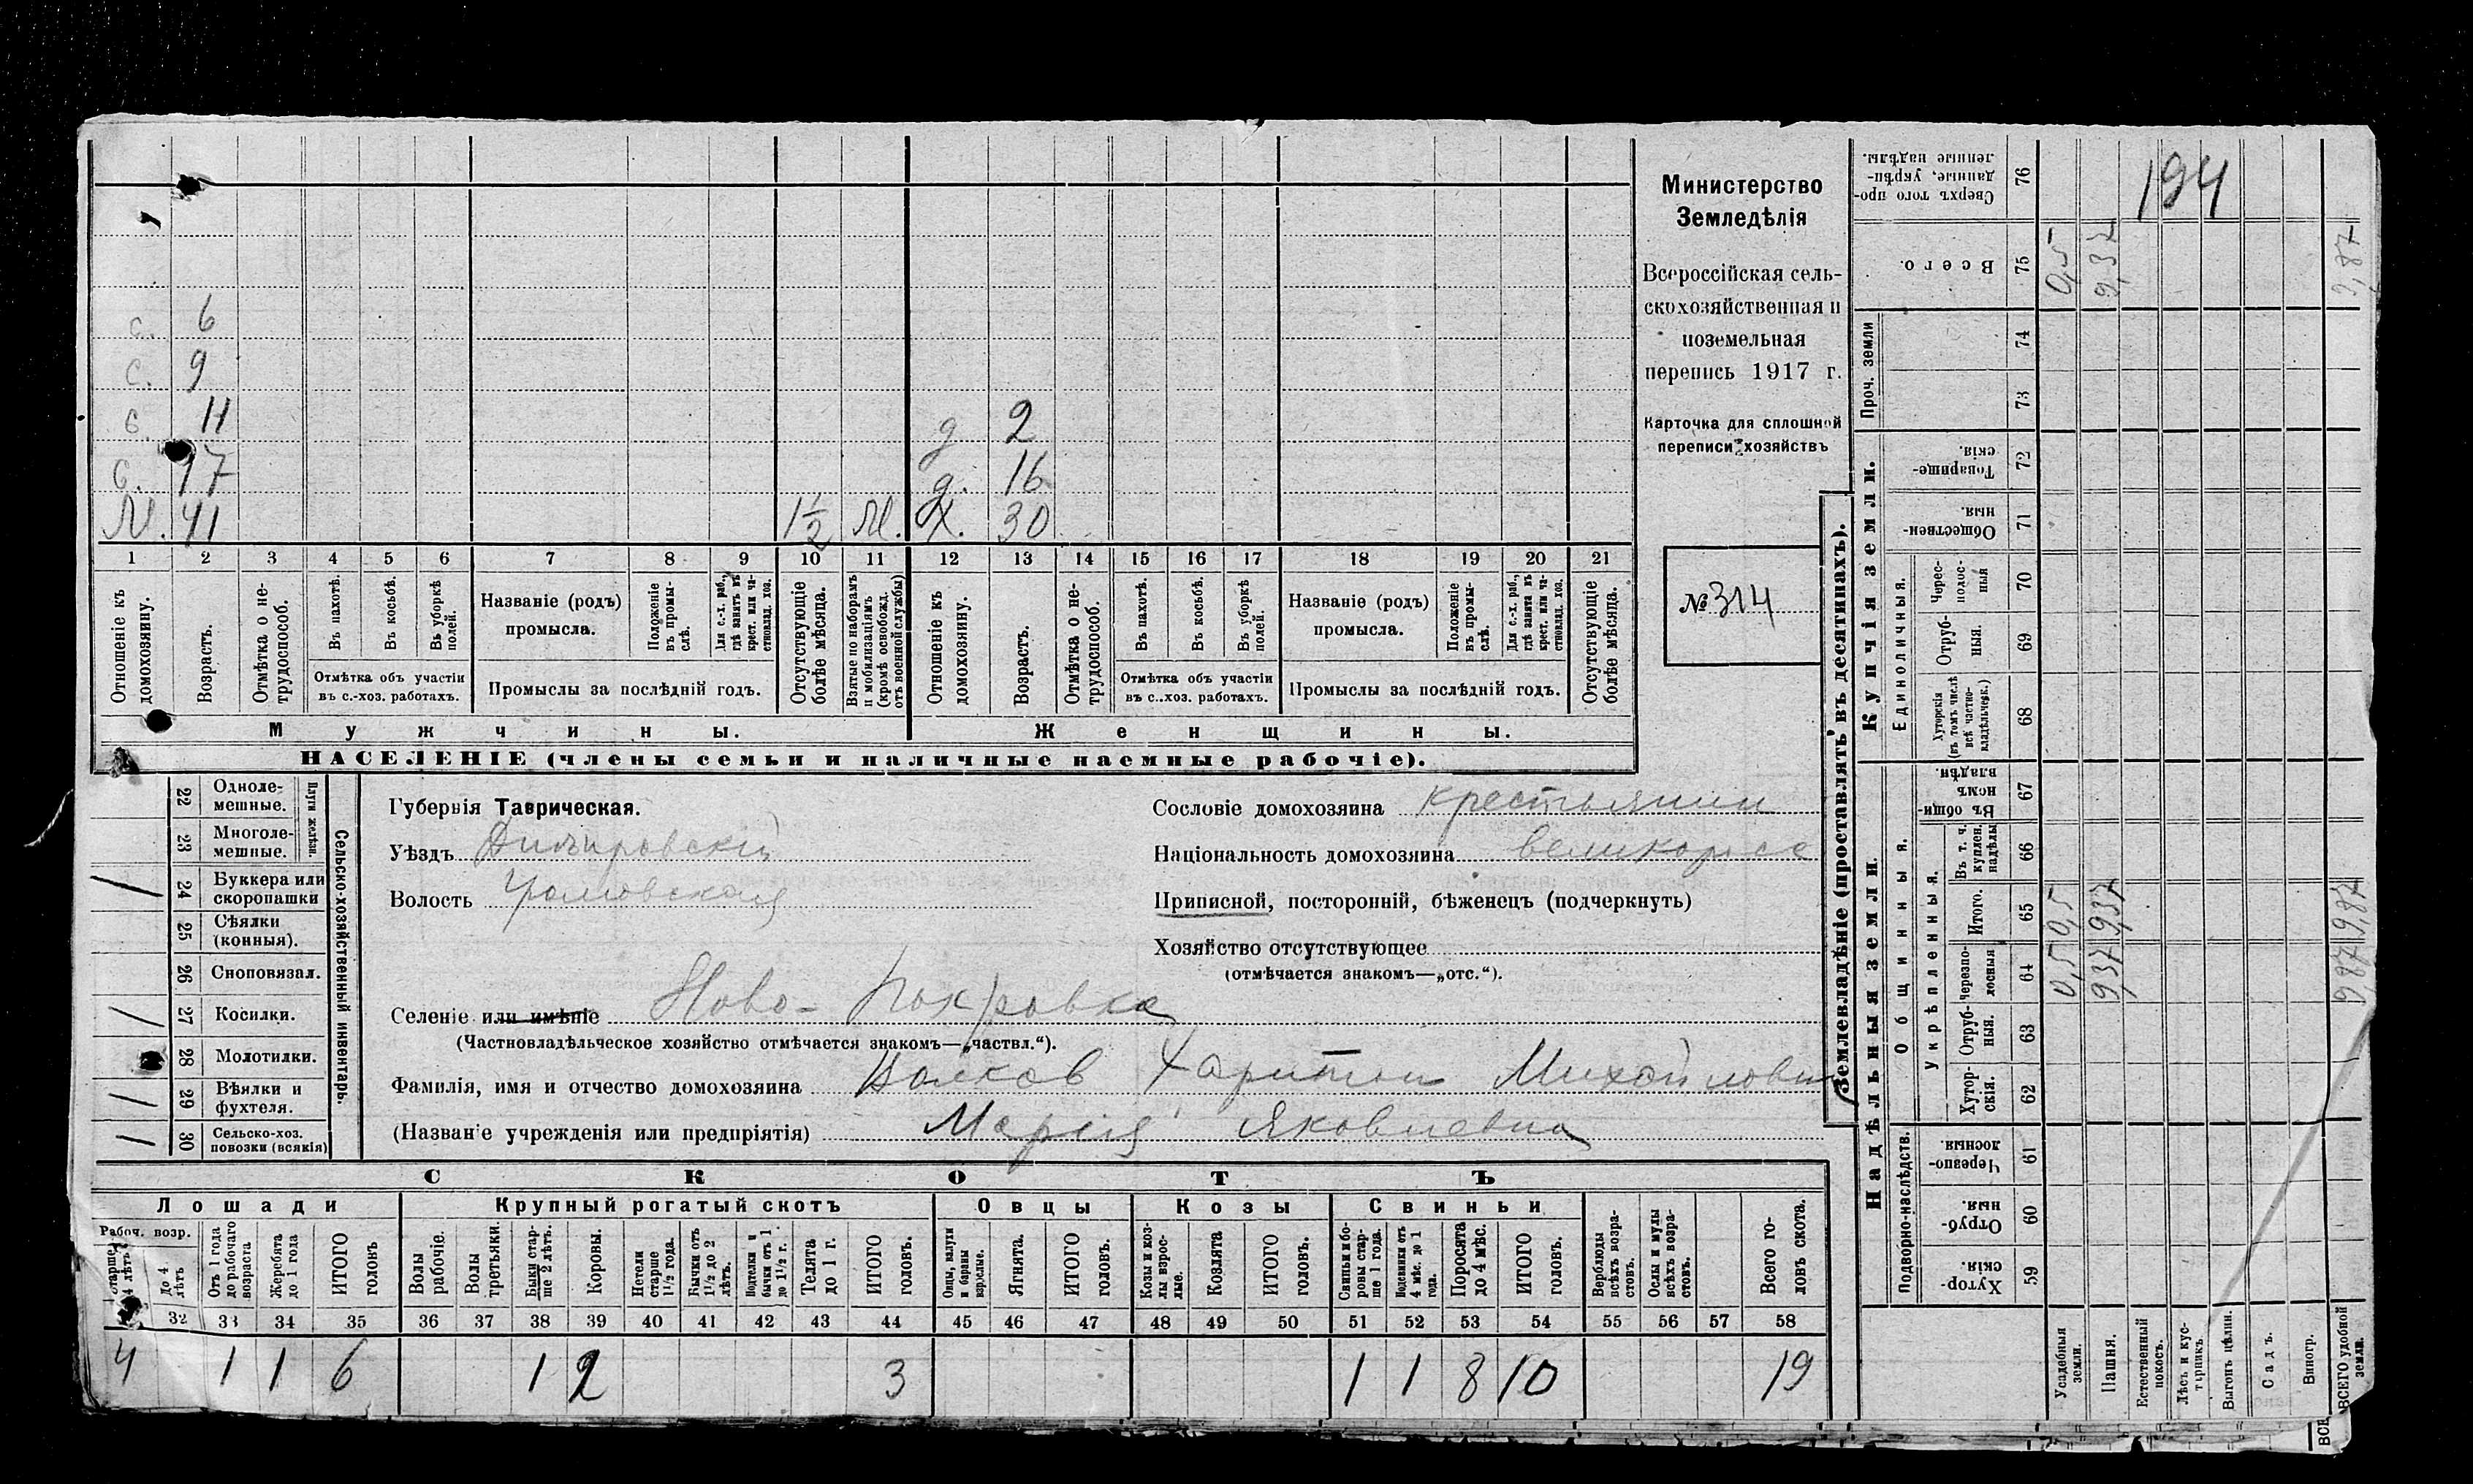 с. 6
с. 9
с. 11 д 2
с. 17 д. 16
М. 41 1½ М. Х. 30
1 2 3 4 5 6 7 8 9 10 11 12 13 14 15 16 17 18 19 20 21
Отношеніе къ домохозяину.
Возрастъ.
Отмѣтка о нетрудоспособ.
Въ пахотѣ.
Въ косьбѣ.
Въ уборкѣ полей.
Отмѣтка объ участіи
въ с.-хоз. работахъ.
Названіе (родъ)
промысла.
Положеніе въ промыслѣ.
Для с.-х. раб., гдѣ занятъ въ крест. или частновлад. хоз.
Промыслы за послѣдній годъ.
Отсутствующіе болѣе мѣсяца.
Взятые по наборамъ и мобилизаціямъ (кромѣ освобожд. отъ военной службы)
Отношеніе къ домохозяину.
Возрастъ.
Отмѣтка о нетрудоспособ.
Въ пахотѣ.
Въ косьбѣ.
Въ уборкѣ полей.
Отмѣтка объ участіи
въ с..хоз. работахъ.
Названіе (родъ)
промысла.
Положеніе въ промыслѣ.
Для с.-х. раб., гдѣ занята въ крест. или частновлад. хоз.
Промыслы за послѣдній годъ.
Отсутствующіе болѣе мѣсяца.
Мужчины.
Женщины.
НАСЕЛЕНІЕ (члены семьи и наличные наемные рабочіе).
Министерство
Земледѣлія
Всероссійская сель-
скохозяйственная и
поземельная
перепись 1917 г.
Карточка для сплошной
переписи хозяйствъ
№ 314
22 Одноле-
мешные.
23 Многоле-
мешные.
Плуги желѣзн.
24 Буккера или
скоропашки
25 Сѣялки
(конныя).
26 Сноповязал.
27 Косилки.
28 Молотилки.
29 Вѣялки и
фухтеля.
30 Сельско-хоз.
повозки (всякія)
Сельско-хозяйственный инвентарь.
Губернія Таврическая.
Уѣздъ Днѣпровскій
Волость
Селеніе или имѣніе Ново-Покровка
(Частновладѣльческое хозяйство отмѣчается знакомъ—„частвл.“).
Фамилія, имя и отчество домохозяина Волков Харитон Михайлович
(Названіе учрежденія или предпріятія) Мария Яковлевна
Сословіе домохозяина крестьянин
Національность домохозяина великоросс
Приписной, посторонній, бѣженецъ (подчеркнуть)
Хозяйство отсутствующее
(отмѣчается знакомъ—„отс.“).
СКОТЪ
Лошади Крупный рогатый скотъ Овцы Козы Свиньи
Рабоч. возр.
Старше 4 лѣтъ
До 4 лѣтъ
Отъ 1 года до рабочаго возраста
Жеребята до 1 года
ИТОГО головъ
Волы рабочіе.
Волы третьяки.
Быки старше 2 лѣтъ.
Коровы.
Нетели старше 1½ года.
Бычки отъ 1½ до 2 лѣтъ.
Подтелки и бычки отъ 1 до 1½ г.
Телята до 1 г.
ИТОГО головъ.
Овцы, валухи и бараны взрослые.
Ягнята.
ИТОГО головъ.
Козы и козлы взрослые.
Козлята
ИТОГО головъ.
Свиньи и боровы старше 1 года.
Подсвинки отъ 4 мѣс. до 1 года.
Поросята до 4 мѣс.
ИТОГО головъ.
Верблюды всѣхъ возрастовъ.
Ослы и мулы всѣхъ возрастовъ.
Всего головъ скота.
32 33 34 35 36 37 38 39 40 41 42 43 44 45 46 47 48 49 50 51 52 53 54 55 56 57 58
4 1 1 6 1 2 3 1 1 8 10 19
Землевладѣніе (проставлять въ десятинахъ).
Сверхъ того проданные, укрѣпленные надѣлы. 76
194
Всего. 75 0,5 9,37 9,87
Проч. земли
74
73
Купчія земли.
Товарищескія. 72
Общественныя. 71
Единоличныя.
Чересполосный 70
Отрубныя. 69
Хуторскія (въ томъ числѣ всѣ частновладѣльческ.) 68
Надѣльныя земли.
Общинныя.
Въ общиномъ владѣн. 67
Укрѣпленныя.
Въ т. ч. куплен. надѣлы 66
Итого. 65 0,5 9,37 9,87
Черезполосныя 64 0,5 9,37 9,87
Отрубныя. 63
Хуторскія. 62
Подворно-наслѣдств.
Черезполосныя 61
Отрубныя. 60
Хуторскія. 59
Усадебныя земли.
Пашня.
Естественный покосъ.
Лѣсъ и кустарникъ.
Выгонъ цѣлин.
Садъ.
Виногр.
ВСЕГО удобной земли.
ВСЕ